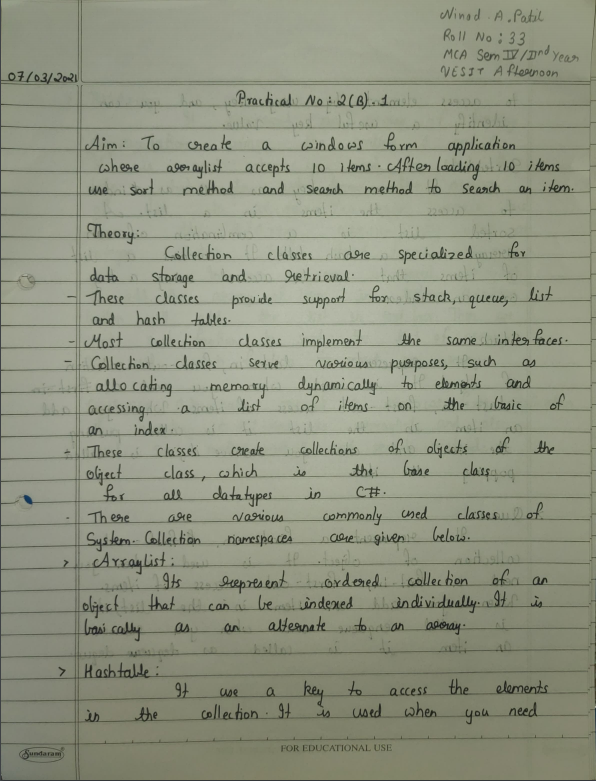 Ninad . A. Patil
Roll No : 33
MCA Sem IV/IInd Year
VESIT Afternoon
07/03/2021
Practical No : 2(B).1
Aim : To create a windows form application
where arraylist accepts 10 items. After loading 10 items
use sort method and search method to search an item.
Theory:
Collection classes are specialized for
data storage and retrieval.
- These classes provide support for stack, queue, list
and hash tables.
- Most collection classes implement the same interfaces.
- Collection classes serve various purposes, such as
allocating memory dynamically to elements and
accessing a list of items on the basic of
an index.
- These classes create collections of objects of the
object class, which is the base class
for all datatypes in C#.
- There are various commonly used classes of
System.Collection namespaces are given below.
> ArrayList :
Its represent ordered collection of an
object that can be indexed individually. It is
basically as an alternate to an array.
> Hashtable :
It use a key to access the elements
in the collection. It is used when you need
Sundaram
FOR EDUCATIONAL USE